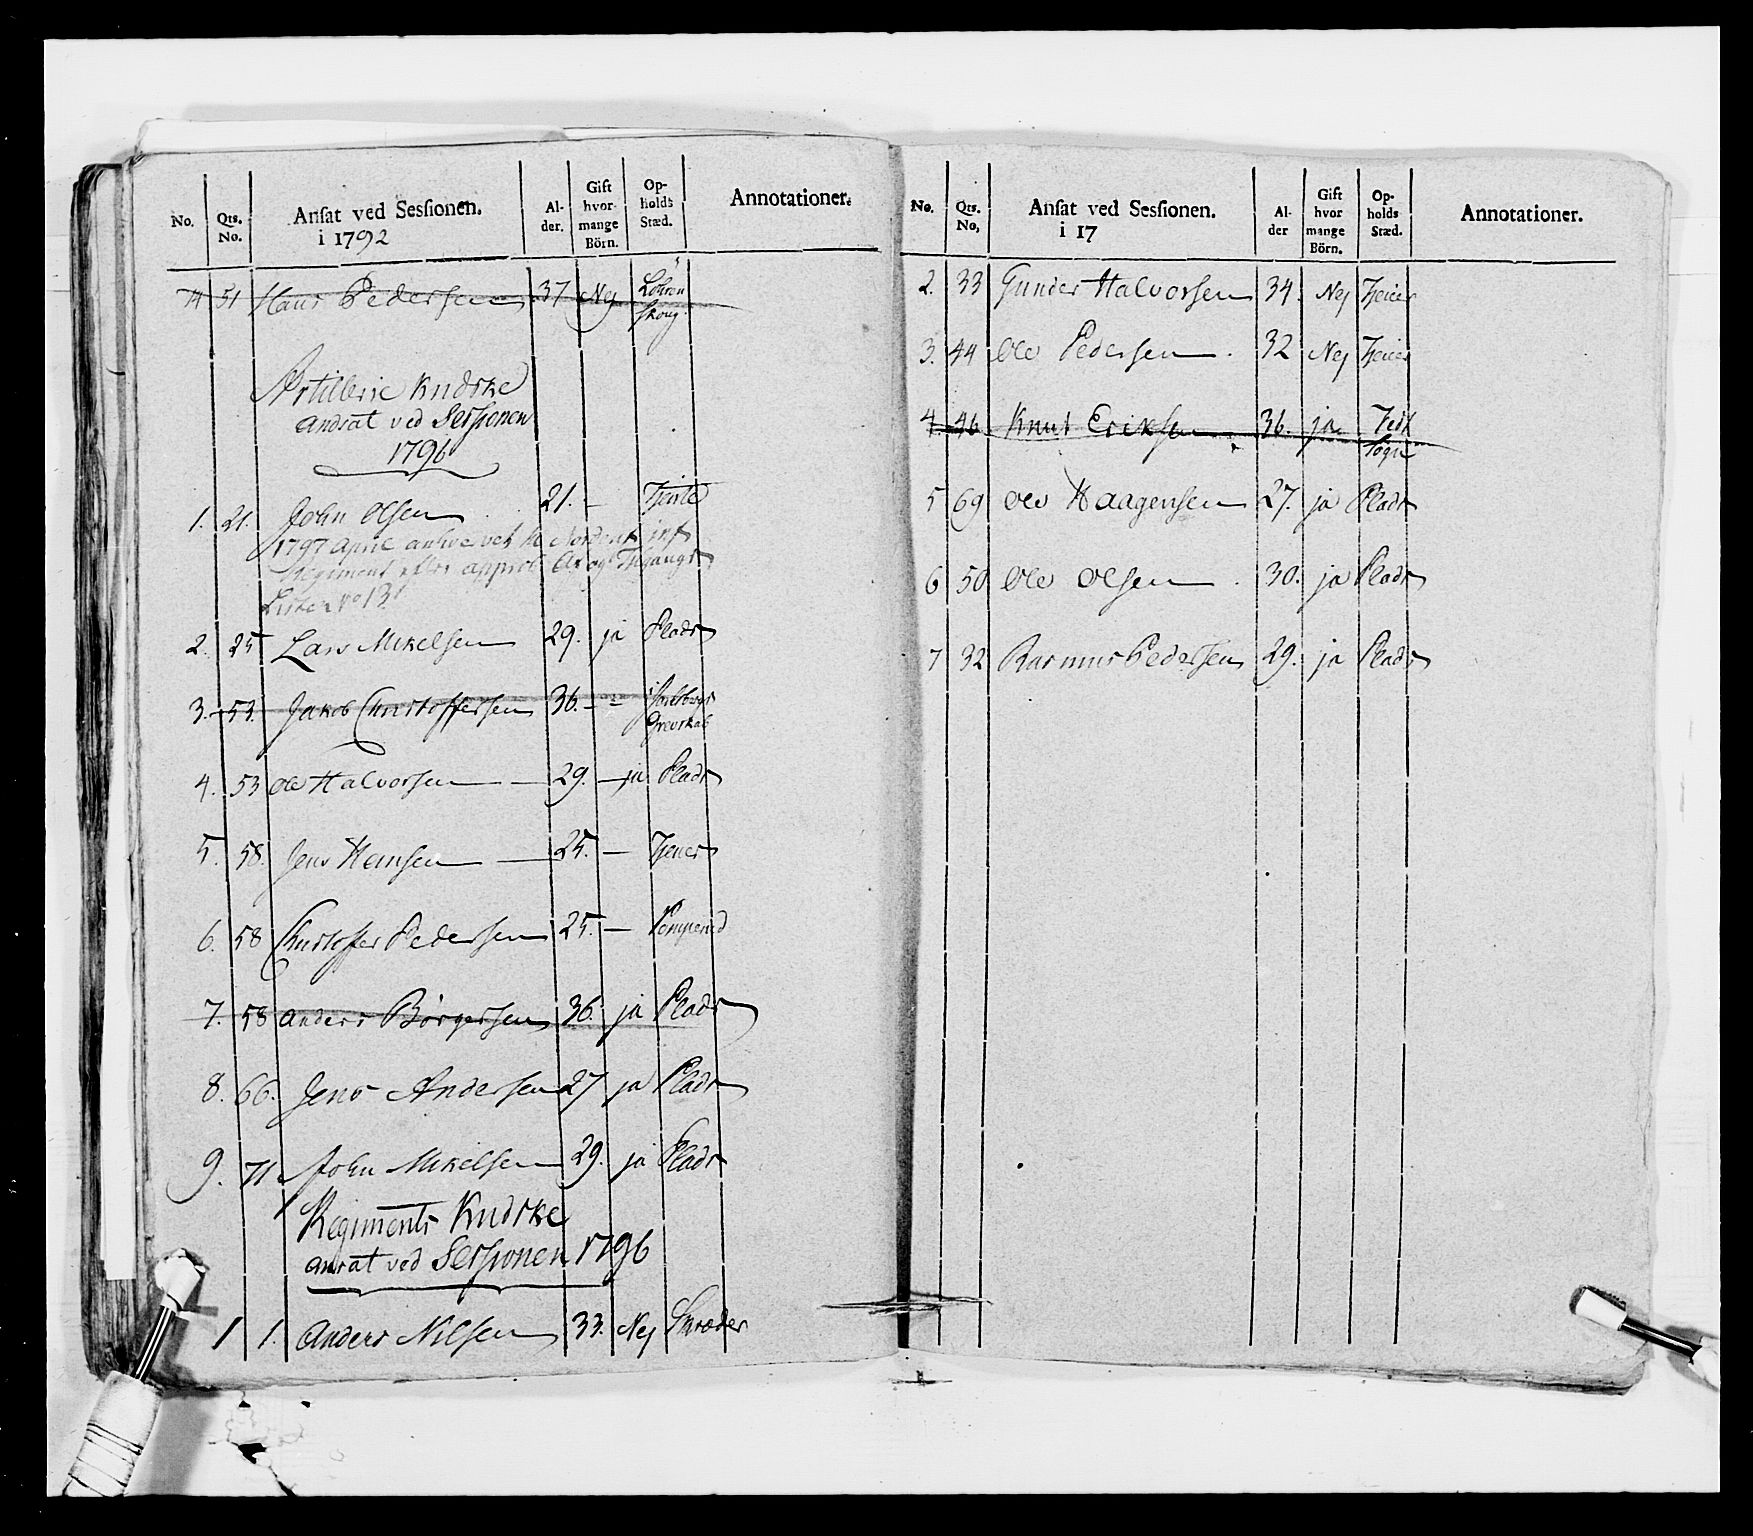 No. Qts. No. Ansat ved Sessionen. i 1792 Al- der. Gift hvor- mange Börn. Op- holds Stæd. Annotationer.
14 51 Hans Pedersen 37 Nej Lören skoug
Artillerie Kudske
andsat ved Sessionen
1796
1. 21. John Olsen 21. — Tjeniste
1797 April
Regiment efter approb: Af og Tilgangs
Liste No 13
2. 25 Lars Mikelsen 29. ja Plads
3. 53. Jakob Christoffersen 36. — Jarlsbergs Grevskab
4. 53 Ole Halvorsen — 29. — ja Plads
5. 58. Jens Hansen — 25. — Tjener
6. 58 Christoffer Pedersen 25. —
7. 58 Anders Börgersen 36. ja Plads
8. 66. Jens Andersen 27 ja Plads
9. 71 John Mikelsen 29. ja Plads
Regiments Kudske
ansat ved Sessionen 1796
1 1. Anders Nilsen 33. Nej Skræder
No. Qts. No. Ansat ved Sessionen. i 17 Al- der Gift hvor mange Börn. Op- holds Stæd. Annotationer.
2. 33 Gunder Halvorsen 34. Nej Tjener
3. 44 Ole Pedersen. 32 Nej Tjener
4. 46 Knut Eriksen 36. ja
5 69 Ole Haagensen 27. ja Plads
6 50 Ole Olsen. 30. ja Plads
7 32 Rasmus Pedersen 29. ja Plads